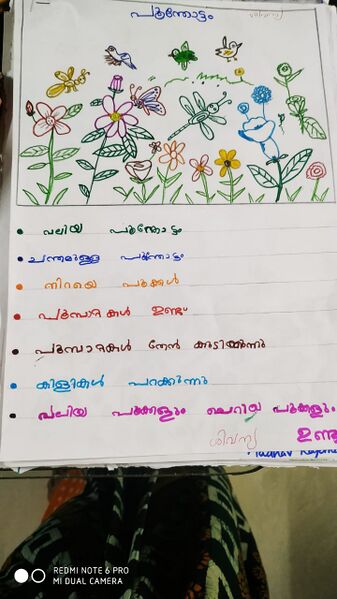 പൂന്തോട്ടം
വലിയ പൂന്തോട്ടം
ചന്തമുള്ള പൂന്തോട്ടം
നിറയെ പൂക്കൾ
പൂമ്പാറ്റകൾ ഉണ്ട്
പൂമ്പാറ്റകൾ തേൻ കുടിക്കുന്നു
കിളികൾ പറക്കുന്നു
വലിയ പൂക്കളും ചെറിയ പൂക്കളും
ശിവന്യ ഉണ്ടു
REDMI NOTE 6 PRO
MI DUAL CAMERA